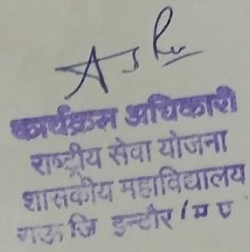 कार्यक्रम अधिकारी
राष्ट्रीय सेवा योजना
शासकीय महाविद्यालय
मऊ जि इन्दौर / म प